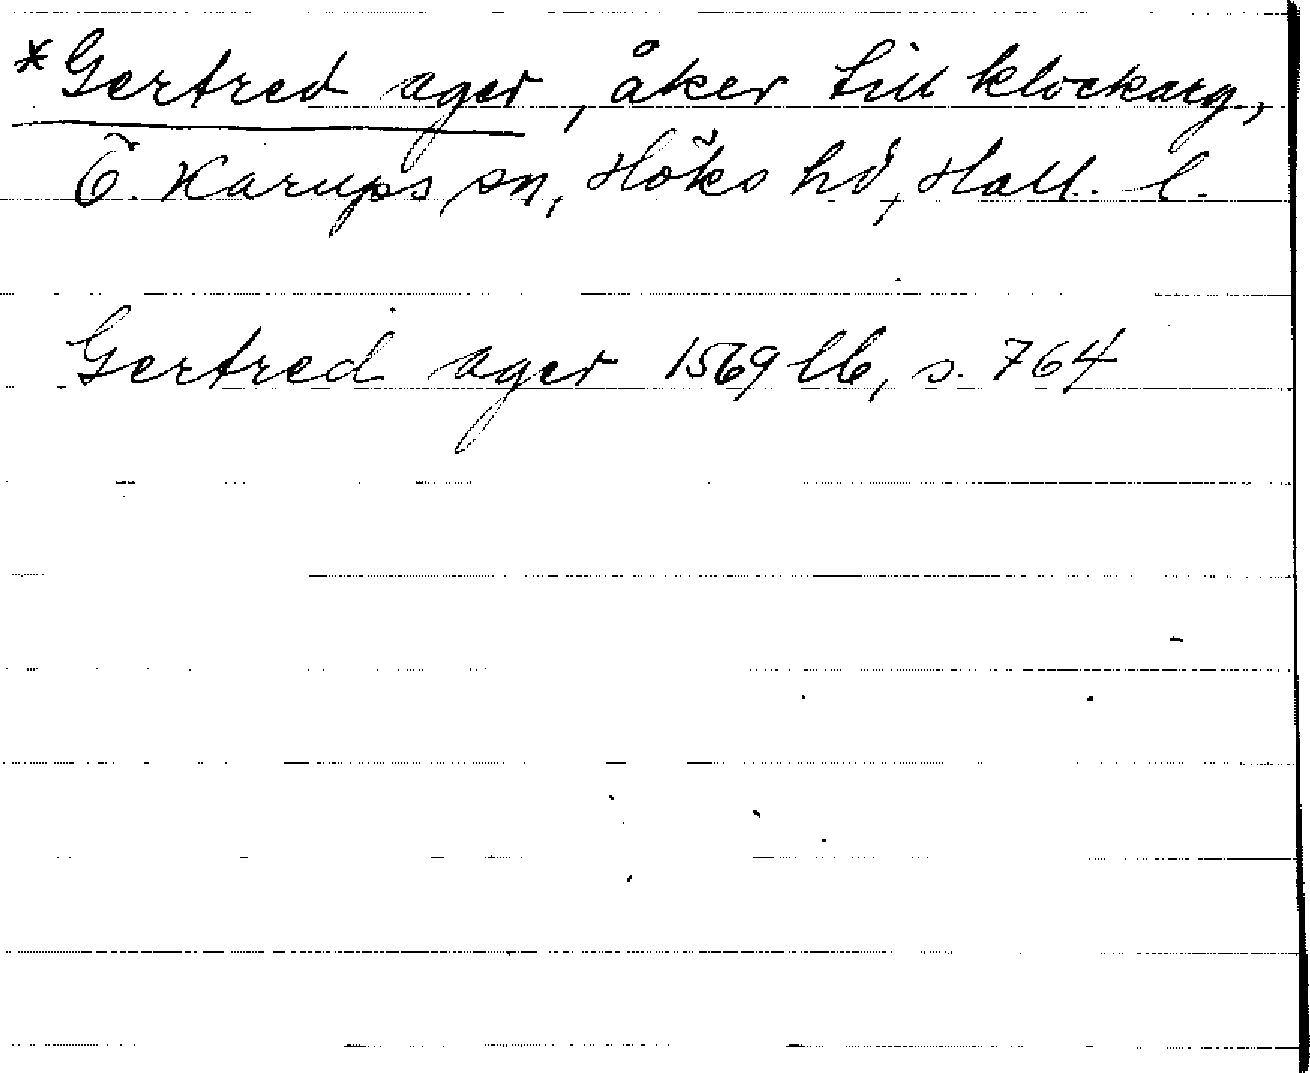 *Gertred ager, åker till klockarg.,
Ö. Karups sn, Höks hd, Hall. l.
Gertred ager 1569 lb, s. 764